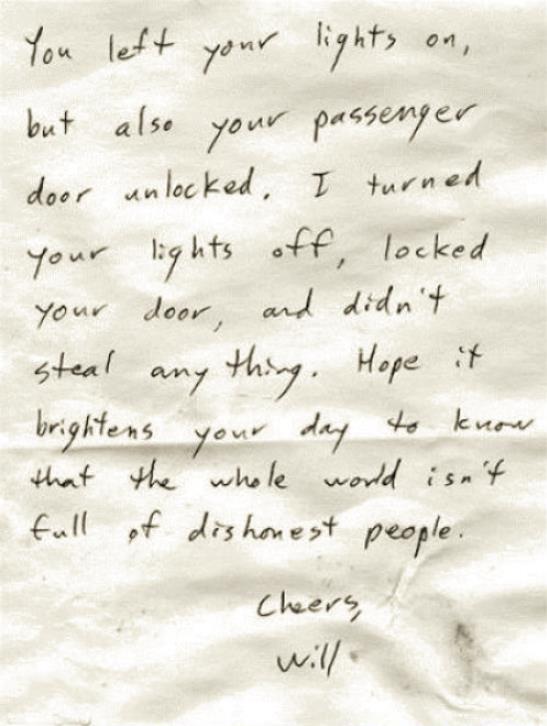 You left your lights on,
but also your passenger
door unlocked. I turned
your lights off, locked
your door, and didn't
steal any thing. Hope it
brightens your day to know
that the whole world isn't
full of dishonest people.
Cheers,
Will